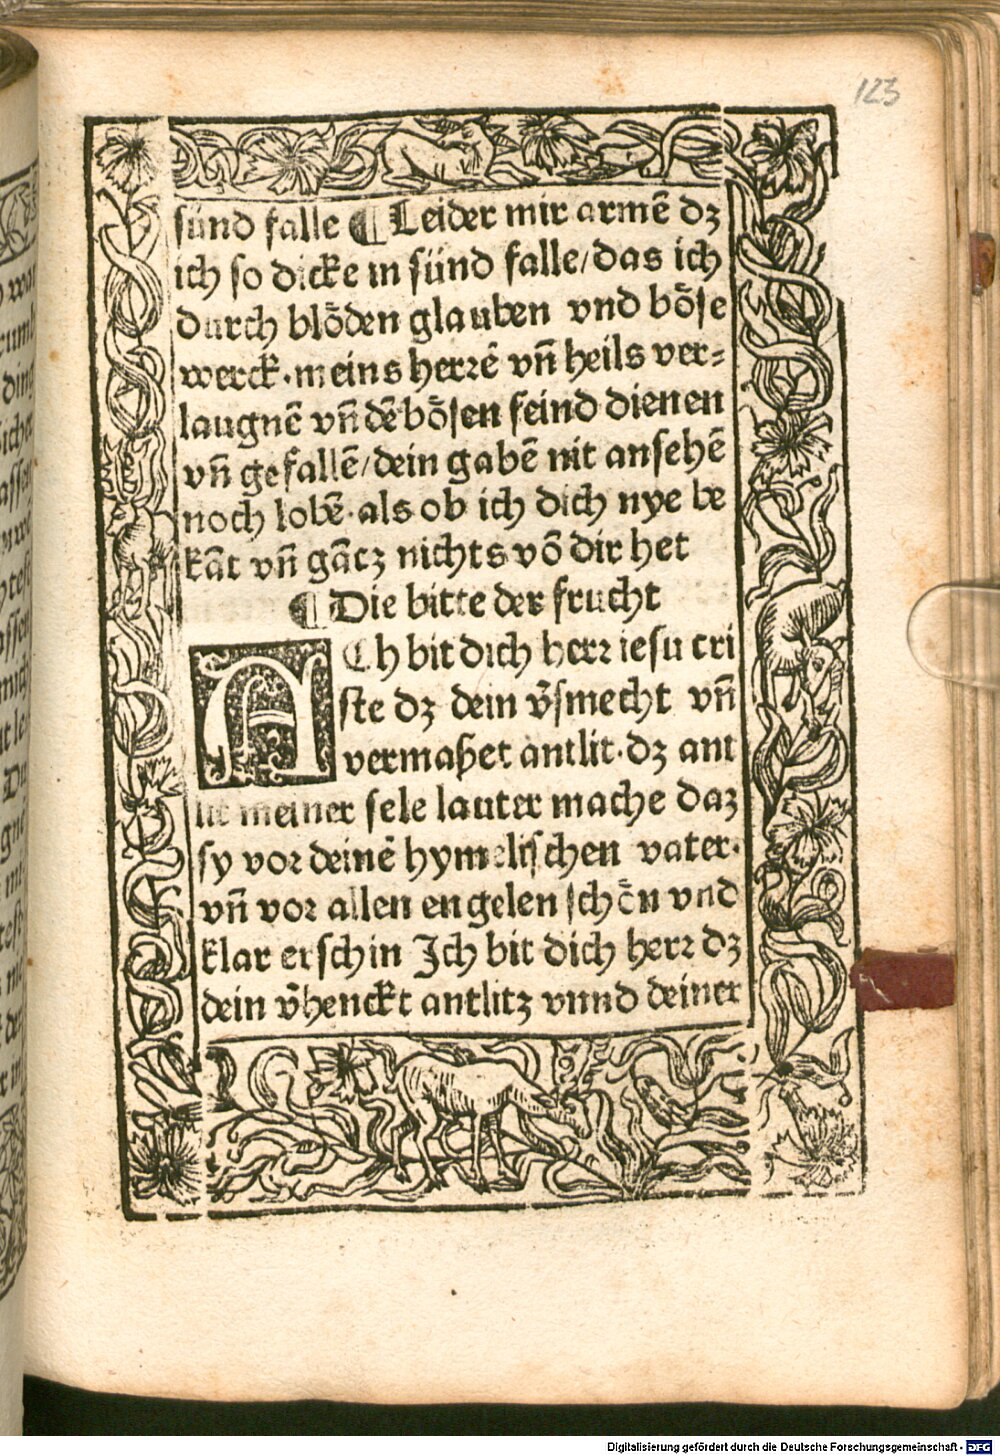 123
sünd falle ¶ Leider mir armē dꝫ
ich so dicke in sünd falle/das ich
durch blöden glauben vnd böse
werck·meins herꝛē vn̄ heils ver⸗
laugnē vn̄ dē bösen feind dienen
vn̄ gefallē/dein gabē nit ansehē
noch lobē·als ob ich dich nye be
kāt vn̄ gātz nichts vō dir het
¶ Die bitte der frucht
ACh bit dich herꝛ iesu cri
ste dꝫ dein v̄smecht vn̄
vermaßet antlit·dꝫ ant
lit meiner sele lauter mache daꝫ
sy vor deinē hymelischen vater·
vn̄ voꝛ allen engelen schön vnd
klar erschin Ich bit dich herꝛ dꝫ
dein v̄henckt antlitz vnnd deiner
Digitalisierung gefördert durch die Deutsche Forschungsgemeinschaft - DFG